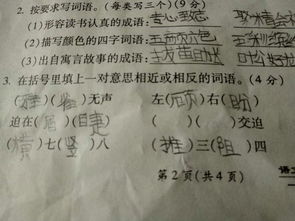 2. 按要求写词语。(每类写三个)(9分)
(1)形容读书认真的成语:专心至志
(2)描写颜色的四字词语:五颜六色
(3)出自寓言故事的成语:
3. 在括号里填上一对意思相近或相反的词语。(4分)
(鸦)(雀)无声 左(顾)右(盼)
迫在(眉)(睫) ( )( )交迫
(横)七(竖)八 (推)三(阻)四
第2页(共4页)
语文